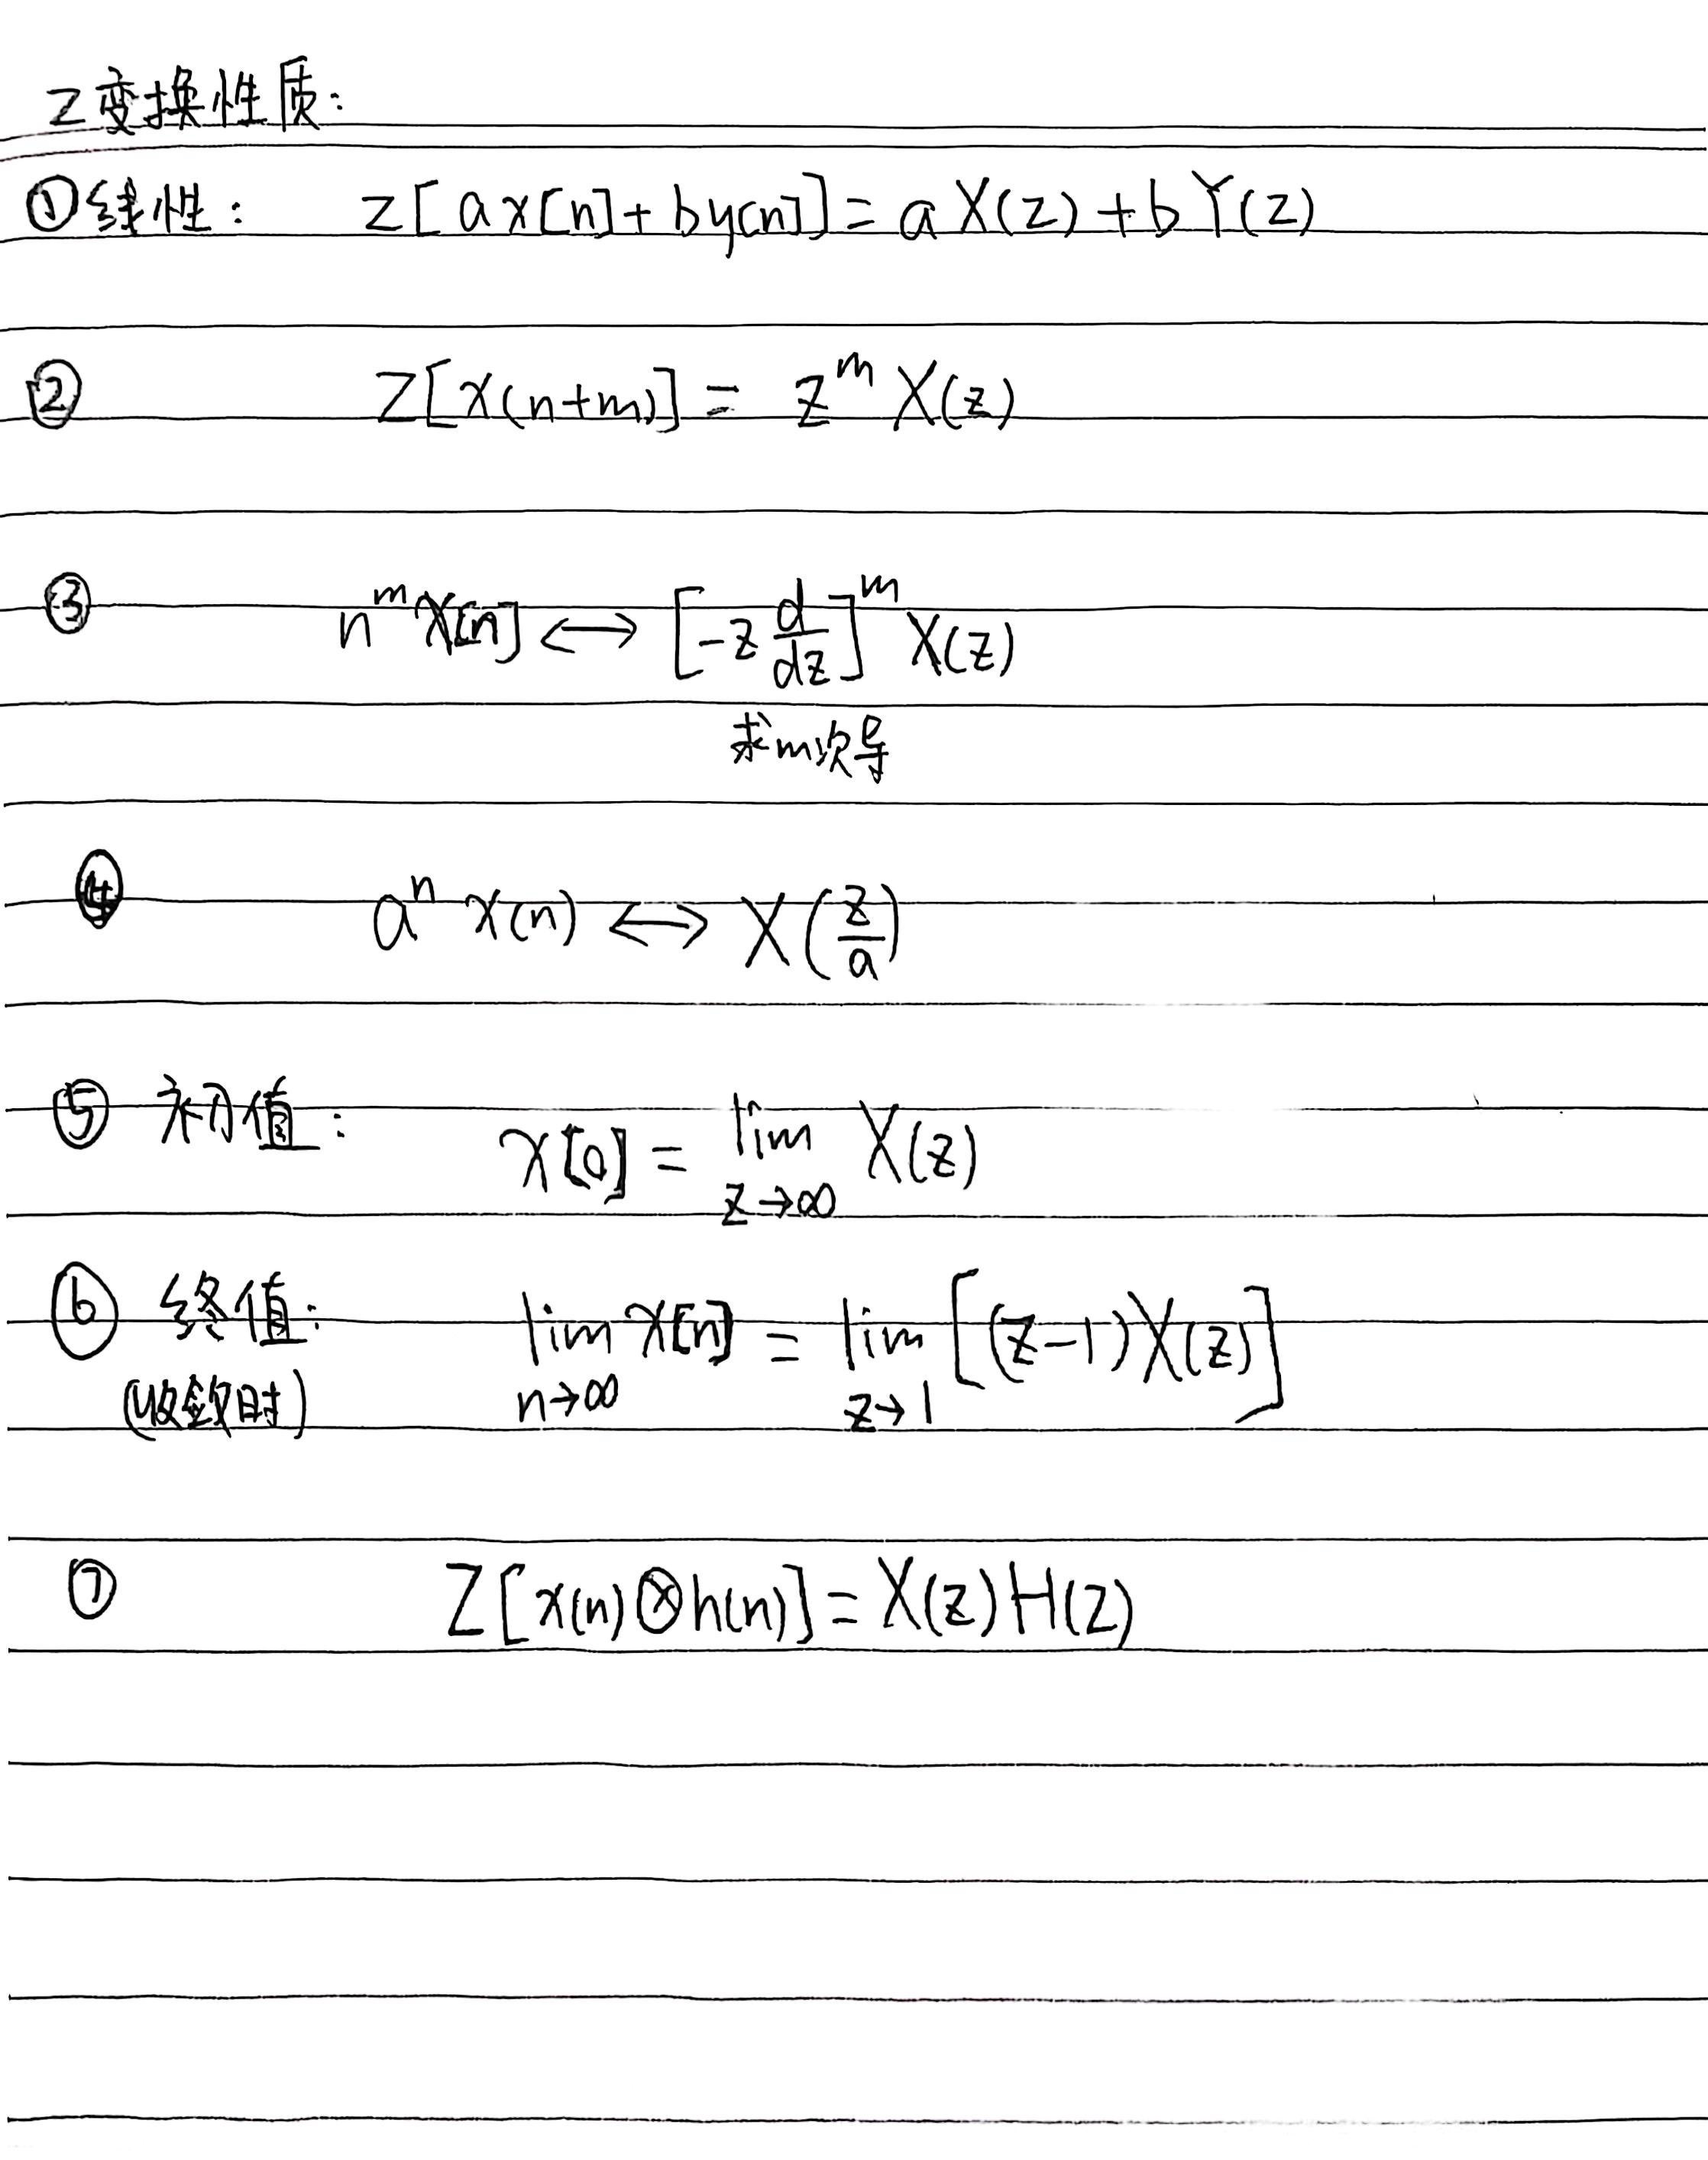 Z变换性质:
①线性: Z[ax[n]+by[n]]=aX(z)+bY(z)
② Z[x(n+m)]= z^m X(z)
③ n^m x[n] ↔ [-z d/dz]^m X(z)
求m次导
④ a^n x(n) ↔ X(z/a)
⑤ 初值: x[0] = lim z→∞ X(z)
⑥ 终值: lim n→∞ x[n] = lim z→1 [(z-1)X(z)]
(收敛时)
⑦ Z[x(n)⊗h(n)]=X(z)H(z)